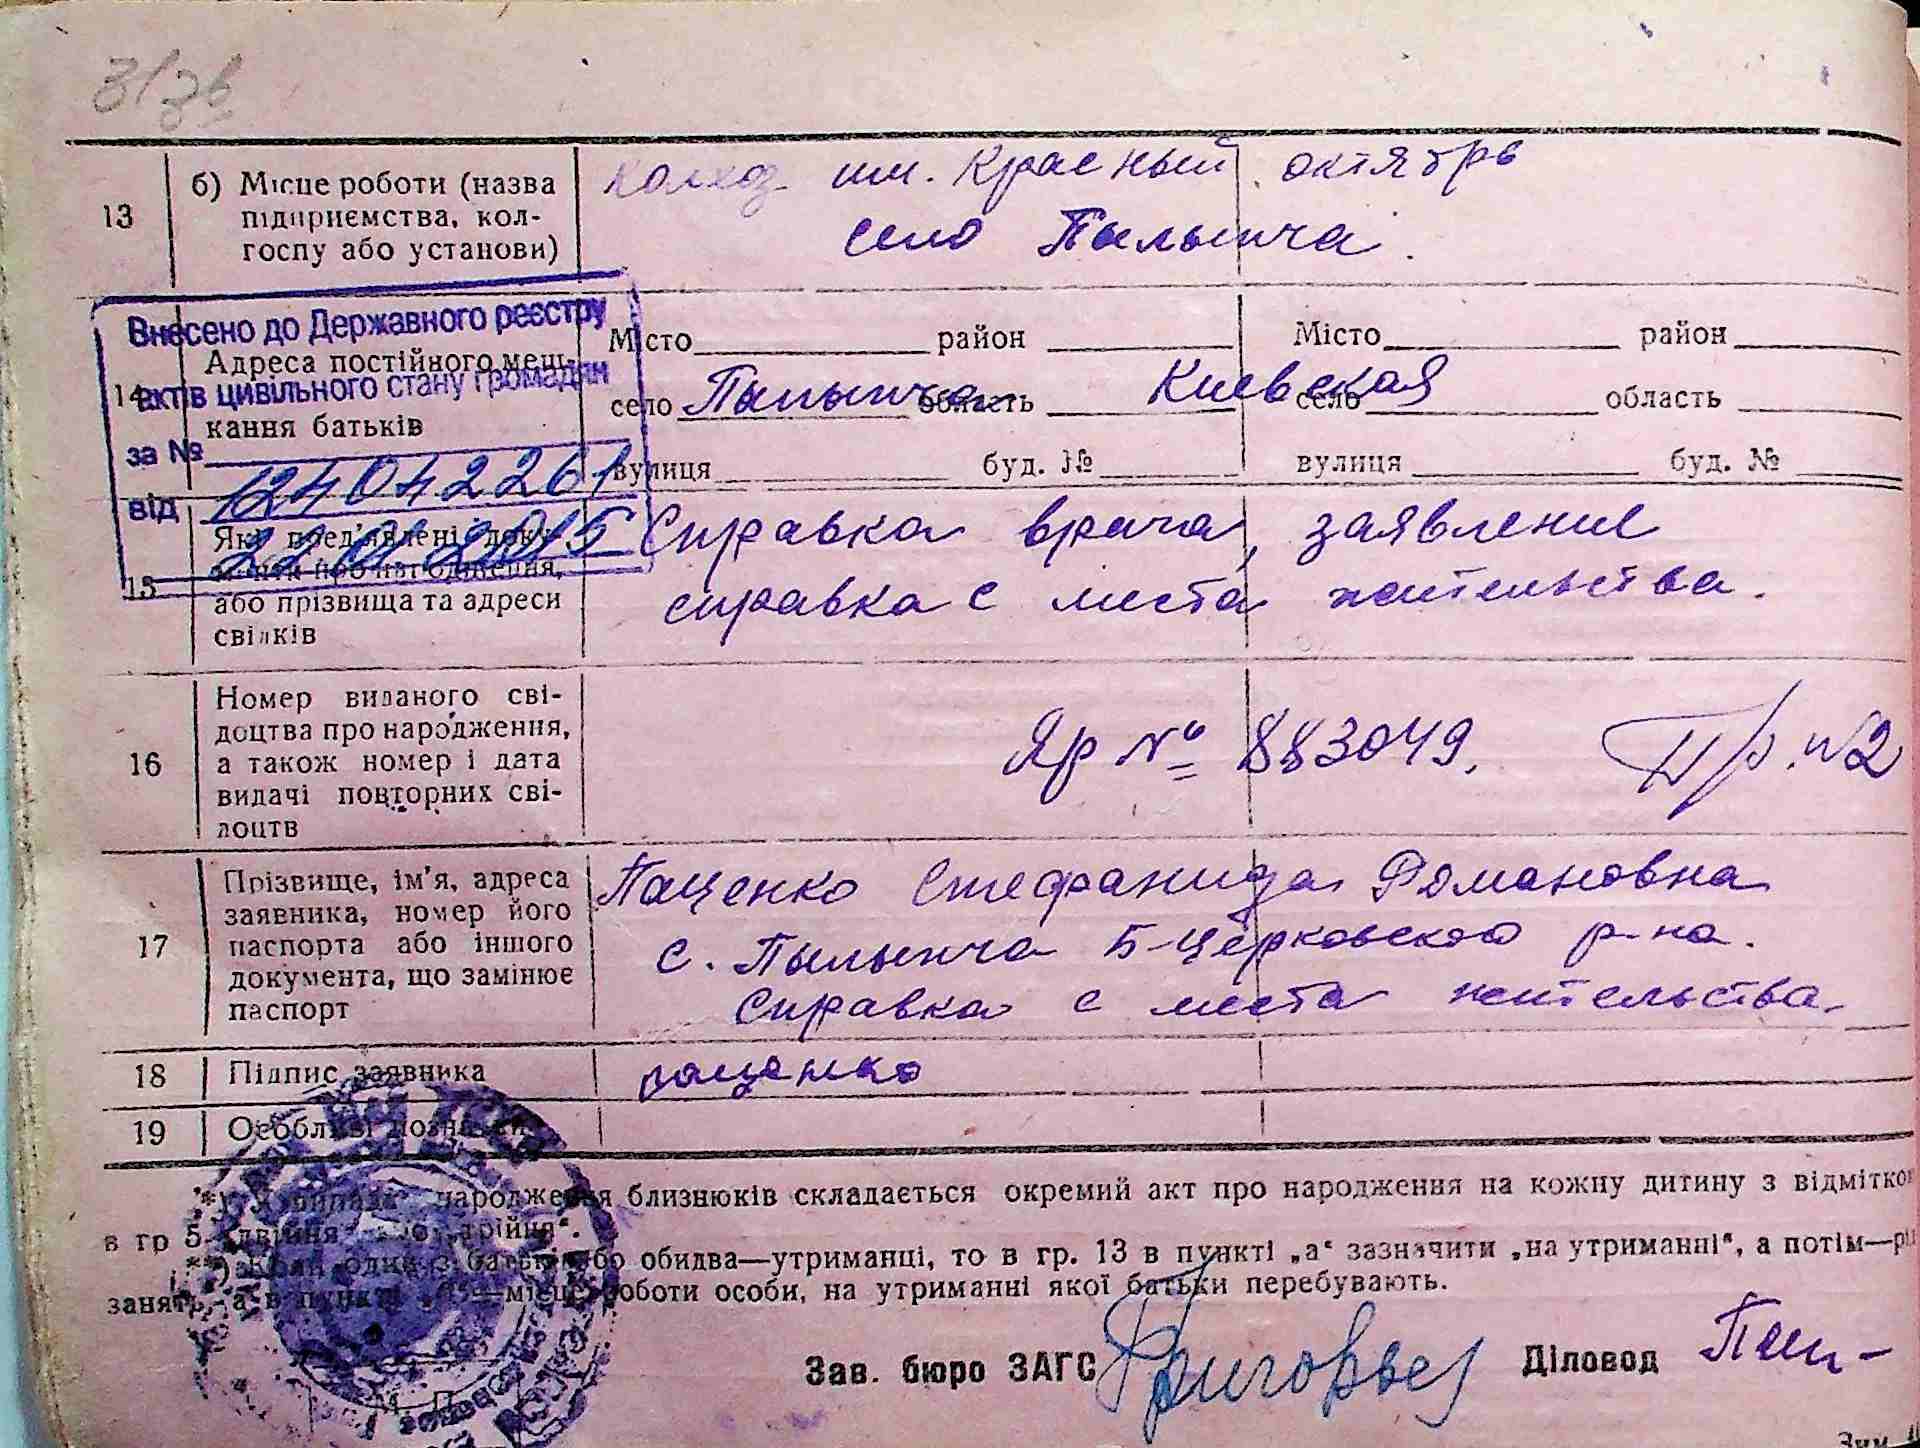 З/зв
13
б) Місце роботи (назва
підприємства, кол-
госпу або установи)
колхоз им. Красный октябрь
село Пылыпча.
Внесено до Державного реєстру
актів цивільного стану громадян
за №
12404226
від
2015
14
Адреса постійного меш-
кання батьків
Місто район
село Пылыпча область Киевская
вулиця буд. №
Місто район
село область
вулиця буд. №
15
Які пред'явлені доку-
менти про народження,
або прізвища та адреси
свідків
Справка врача, заявление
справка с места жительства.
16
Номер виданого сві-
доцтва про народження,
а також номер і дата
видачі повторних сві-
доцтв
Яр № 883049. Пр. №2
17
Прізвище, ім'я, адреса
заявника, номер його
паспорта або іншого
документа, що замінює
паспорт
Паценко Стефанида Романовна
с. Пылыпча Б-Церковского р-на.
Справка с места жительства.
18
Підпис заявника
паценко
19
Особливі позначки
*) У випадку народження близнюків складається окремий акт про народження на кожну дитину з відміткою
в гр 5 „двійня" або „трійня".
**) Коли один з батьків або обидва—утриманці, то в гр. 13 в пункті „а" зазначити „на утриманні", а потім—рід
занять, а в пункті „б"—місце роботи особи, на утриманні якої батьки перебувають.
Зав. бюро ЗАГС Григорьев Діловод
М. П.